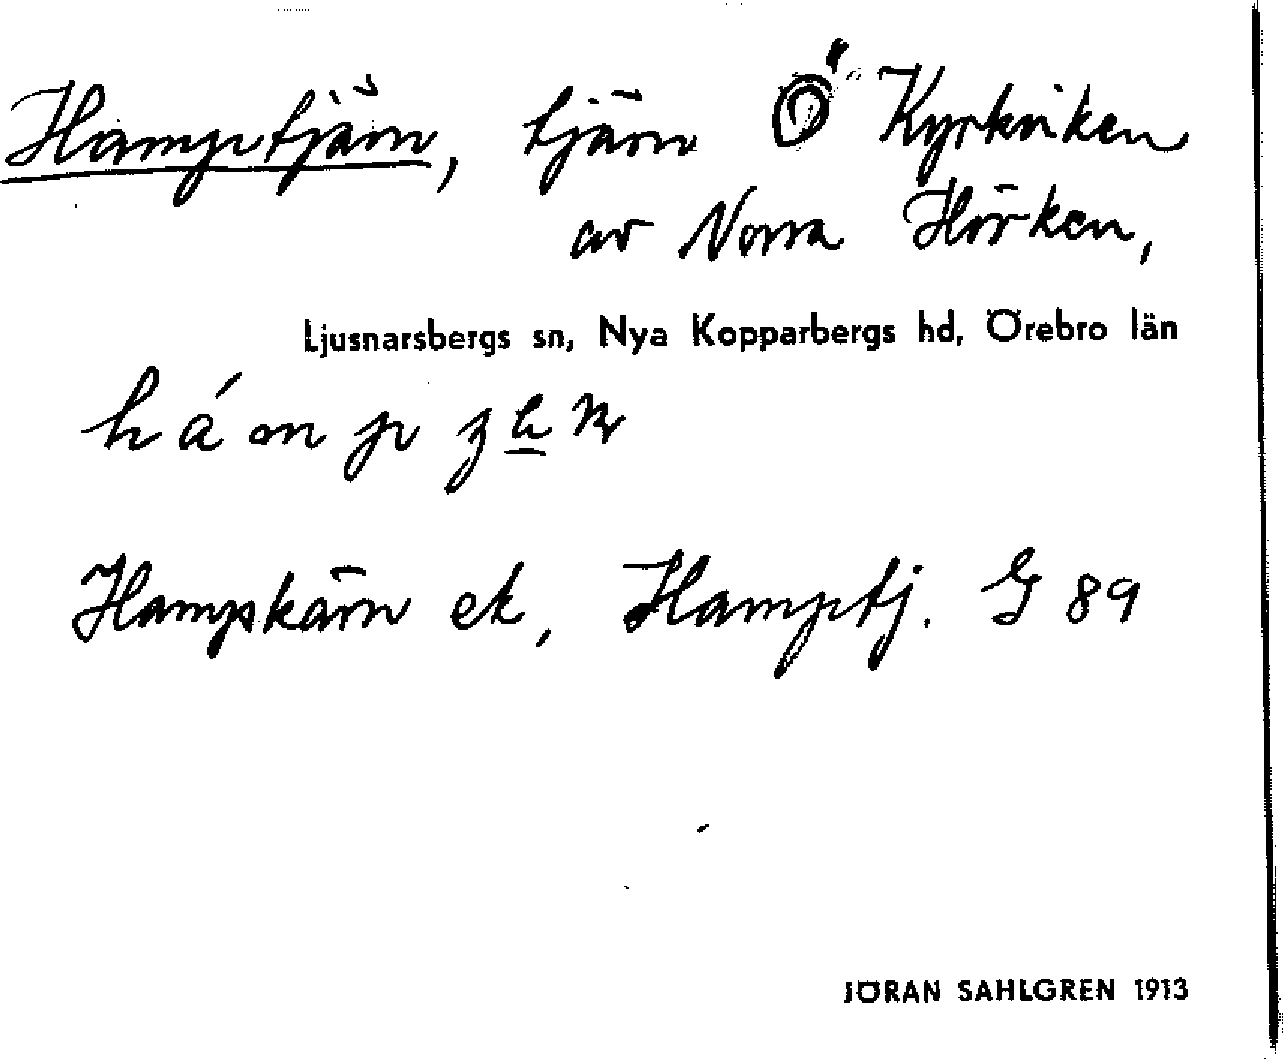 Hamptjärn, tjärn Ö Kyrkviken
av Norra Hörken,
Ljusnarsbergs sn, Nya Kopparbergs hd, Örebro län
Hampkärn ek, Hamptj. G 89
JÖRAN SAHLGREN 1913